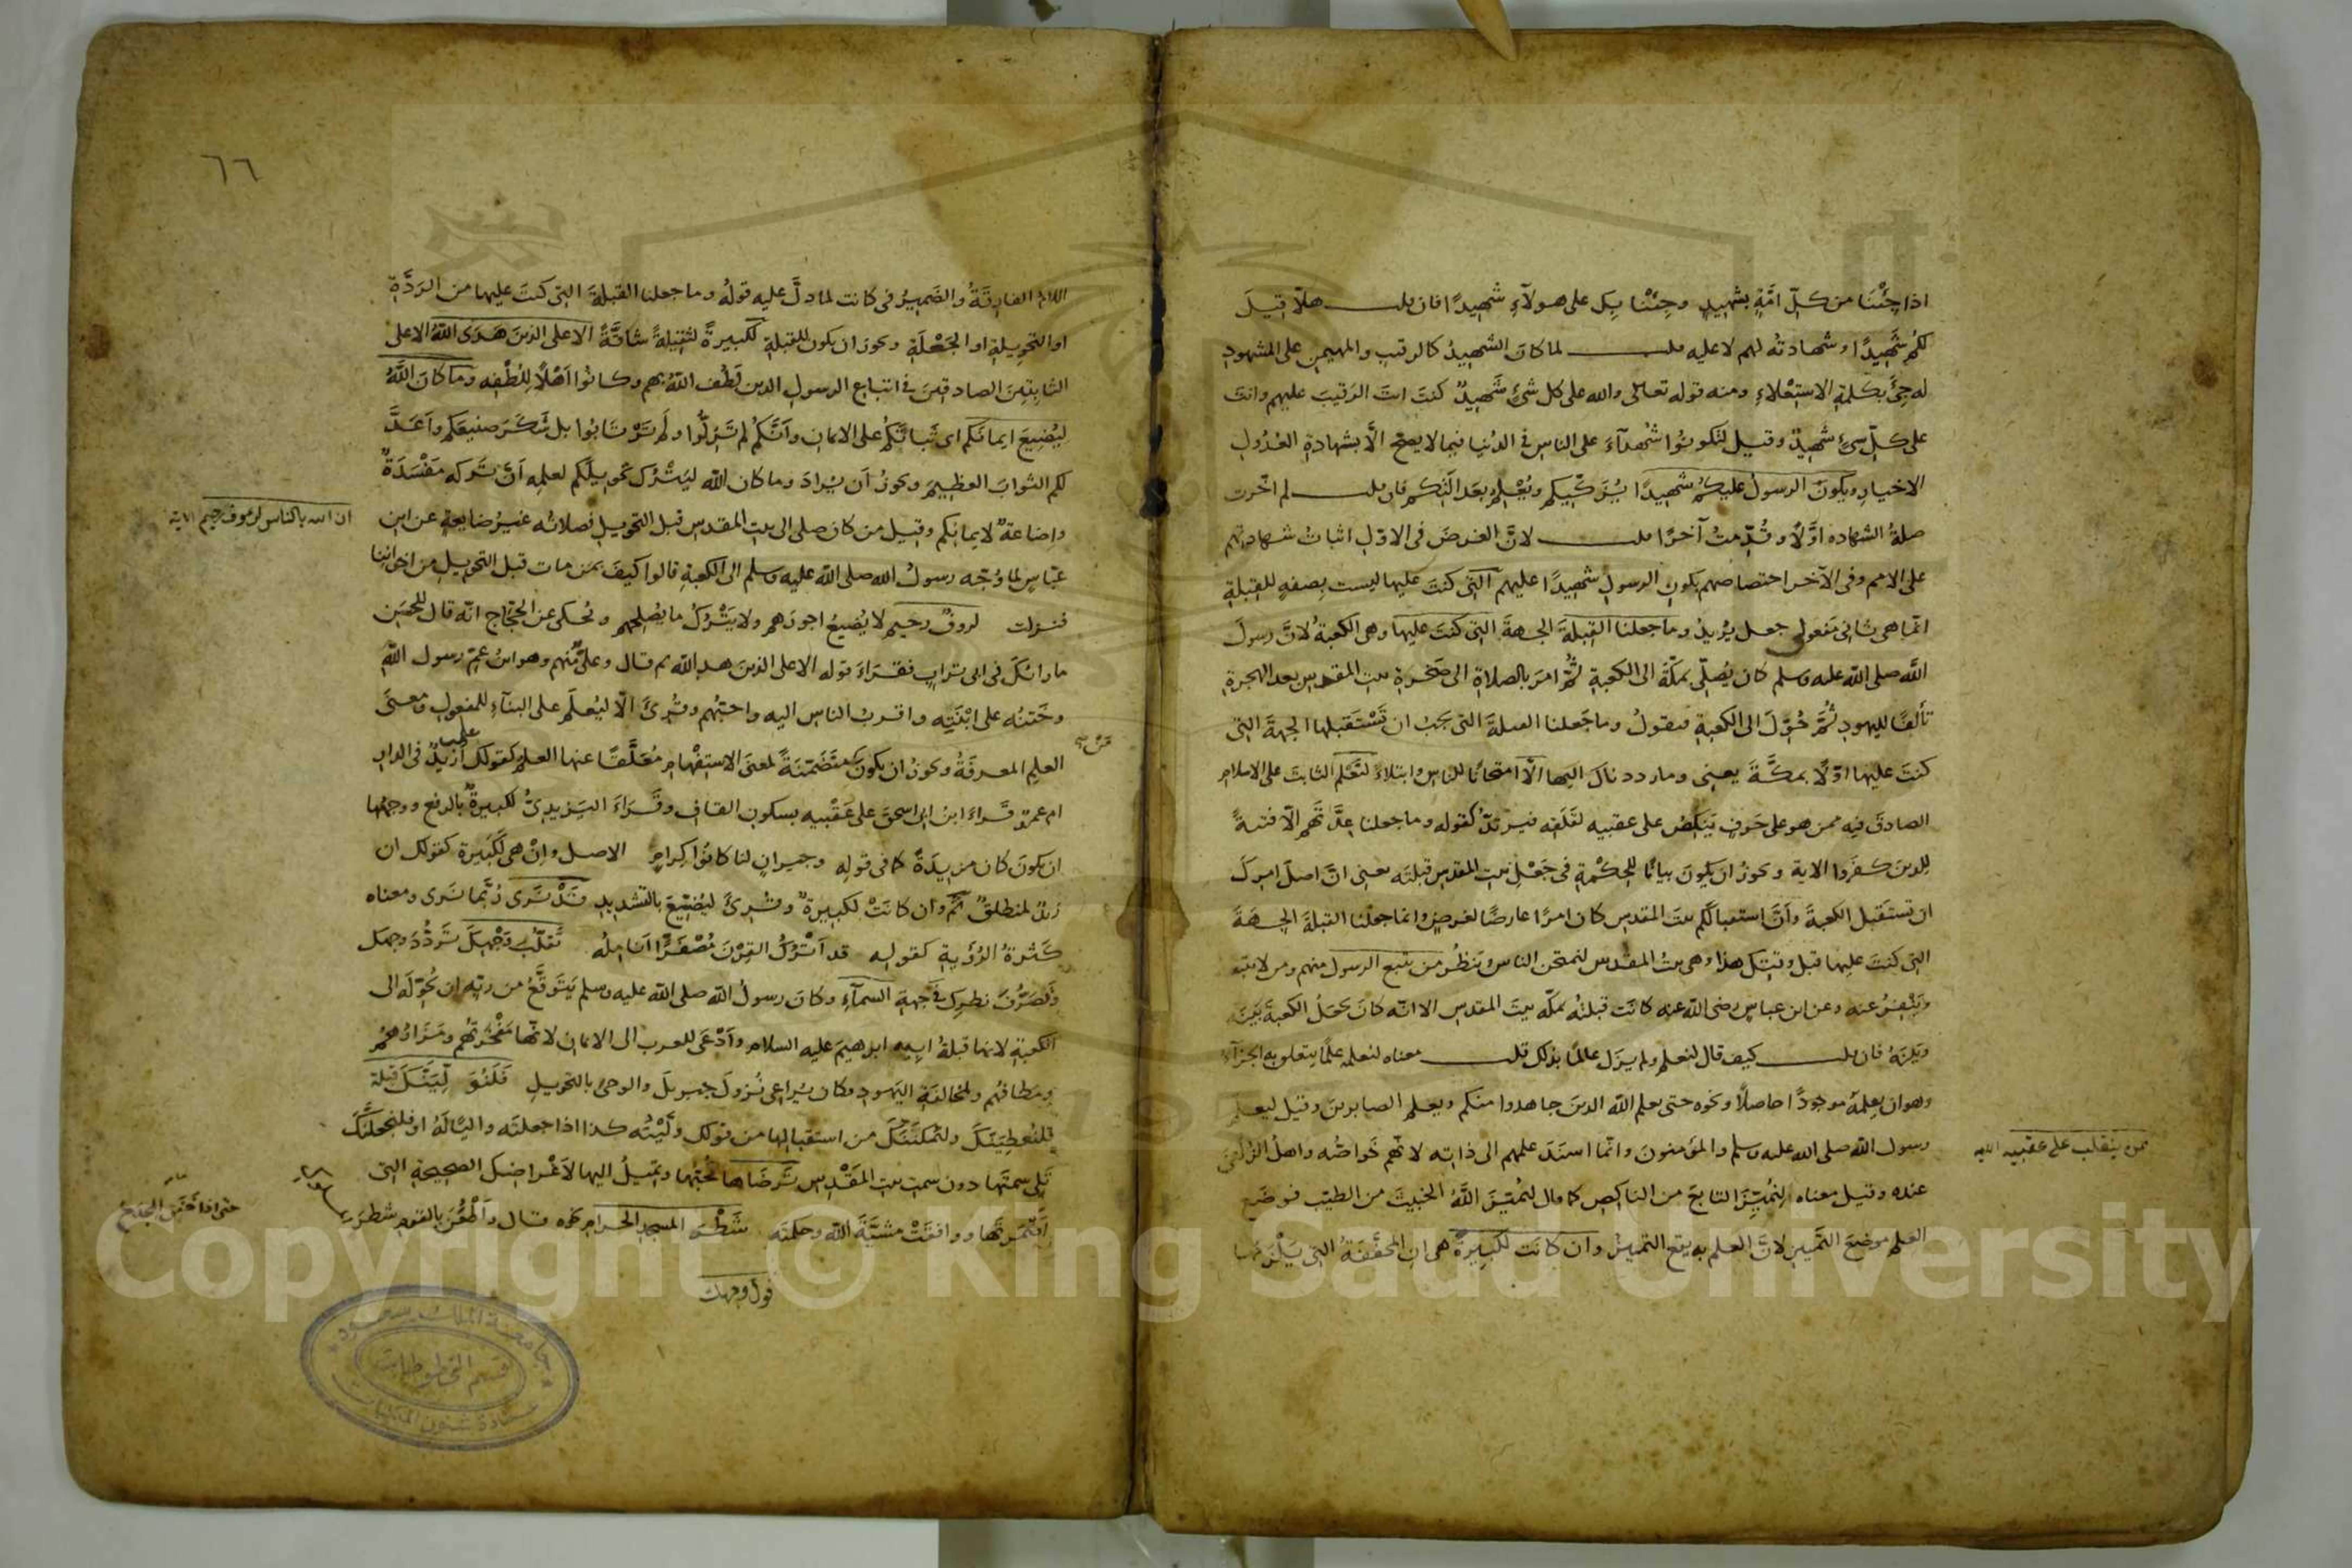 اذا جِئْنَا من كلّ امّةٍ بشهيدٍ وجِئْنا بِكَ على هولآءِ شهيدًا فان قلت هلّا قيلَ
لكُم شَهِيدًا وشهادتُه لهم لا عليه قلت لما كانَ الشهيدُ كالرقيبِ والمهيمنِ على المشهودِ
له جِئَ بكلمةِ الاستِعْلاءِ ومنه قوله تعالى والله على كل شئٍ شَهِيدٌ كنتَ انتَ الرَقيبَ عليهم وانتَ
على كلّ شئٍ شَهِيدٌ وقيل لتكونوُا شُهدآءَ على الناس في الدُنيا فيما لا يصحّ الّا بشهادةِ العُدُولِ
الاخيارِ ويكونَ الرسولُ عليكُم شهيدًا يُزَكّيكم ويُعْلِمُ بعَدالتكم فان قلت لم اخّرت
صلةُ الشهاده اوّلًا وقُدّمتْ آخرًا قلت لانّ الغرضَ في الاوّلِ اثباتُ شهادتهم
على الامم وفي الآخر اختصاصهم بكونِ الرسولِ شهيدًا عليهم التي كنتَ عليها ليست بصفةٍ للقبلةِ
انّما هي ثاني مَفعولَي جعل يريدُ وما جعلنا القبلةَ الجهةَ التي كنتَ عليها وهي الكعبةُ لانّ رسولَ
الله صلى الله عليه وسلم كان يُصلّي بمكّةَ الى الكعبةِ ثُمّ امرَ بالصلاةِ الى صَخرةِ بيت المقدس بعد الهجرةِ
تألفًا لليهودِ ثُمّ حُوّلَ الى الكعبةِ فيقولُ وما جَعلنا القبلةَ التي يجبُ ان تَسْتَقبلها الجهةَ التي
كنتَ عليها اوّلًا بمكّةَ يعني وما رددناكَ اليها الّا امتحانًا للناس وابتلاءً لنَعْلم الثابتَ على الاسلام
الصادقَ فيه ممن هو على حَرفٍ يَنكصُ على عقبيه لقَلَقِه فيرتدّ كقوله وما جعلنا عِدّتَهم الّا فتنةً
للذين كفروا الاية ويجوز ان يكونَ بيانًا للحِكْمةِ في جَعْلِ بيت المقدس قبلتَه يعني انّ اصلَ امرِك
ان تستقبل الكعبةَ وأنّ استقبالكم بيتَ المقدس كان امرًا عارضًا لغرضٍ وانما جعلنا القبلةَ الجهةَ
التي كنتَ عليها قبل وقتك هذا وهي بيتُ المقدس لنمتحن الناس وننظُر من يتبع الرسول منهم ومن لا يتبعه
ويَنْفِرُ عنه وعن ابن عباسٍ رضي الله عنه كانَت قبلتُه بمكّه بيتَ المقدس الا انّه كانَ يجعلُ الكعبةَ بَيْنَه
وبَيْنَهُ فان قلت كيف قال لنعلمَ ولم يزَل عالمًا بذلك قلت معناه لنعلمه علمًا يتعلق به الجزآءُ
وهو ان يعلمهُ موجودًا حاصلًا ونحوه حتى يعلم الله الذين جاهدوا منكم ويعلم الصابرين وقيل ليعلم
رسول الله صلى الله عليه وسلم والمؤمنون وانّما اسنَدَ علمهم الى ذاته لانّهم خَواصّه واهلُ الزُلفَى
عنده وقيل معناه لِنُميّزَ التابعَ من الناكِصِ كما قال ليُميّز اللهُ الخبيثَ من الطيّب فوضَع
العلمَ موضعَ التمييز لانّ العلم به يقع التمييزُ وان كانَت لكبيرةً هي انِ المخفّفةُ التي يَلْزمُها
ممن ينقلب على عقبيه
٦٦
اللامُ الفارقةُ والضَميرُ في كانت لما دلّ عليه قولُه وما جعلنا القبلةَ التي كنتَ عليها من الردّةِ
او التحويلةِ او الجَعْلَةِ ويجوز ان يكون للقبلةِ لكبيرةً لثقيلةً شاقّةً الا على الذين هَدَى اللهُ الا على
الثابتينَ الصادقينَ في اتباع الرسولِ الذين لَطُفَ اللهُ بهم وكانوُا اَهْلًا للُطْفِه وما كانَ اللهُ
ليُضِيعَ ايمانَكم اي ثَباتَكُم على الايمانِ وأنّكُم لم تَزِلّوا ولم ترتابوا بل شَكَرَ صنيعَكم واَعَدّ
لكم الثوابَ العظيمَ ويجوزُ اَن يُرادَ وما كان الله ليَترُكَ تحويلَكم لعلمِه اَنّ تركَه مَفْسَدَةٌ
واضاعةٌ لايمانِكم وقيل من كان صلى الى بيت المقدس قبل التحويلِ فصلاتُه غيرُ ضايعةٍ عن ابن
عبّاسٍ لما وُجّه رسولُ الله صلى الله عليه وسلم الى الكعبةِ قالوا كيفَ بمن مات قبل التحويلِ من اخوانِنا
فنزلت لروفٌ رحيم لا يُضيعُ اجورَهم ولا يَتْرُكُ ما يُصْلِحُهم ويُحكى عن الحجّاجِ انّه قال للحسَن
ما رائكَ في ابي ترابٍ فقرَاءَ قوله الا على الذين هدى الله ثم قال وعليٌّ منهم وهو ابنُ عمّ رسول الله
وخَتنُه على ابْنَتِه واقربُ الناسِ اليه واحبّهم وقُرِئَ الّا ليُعلَمَ على البنآءِ للمفعولِ ومعنَى
العلم المعرفةُ ويجوزُ ان يكون متضمّنةً لمعنَى الاستفهام مُعلّقًا عنها العلم كقولك علمت أزيدٌ في الدار
ام عمرو قَرَاءَ ابنُ ابي اسحقَ على عَقْبيه بسكونِ القافِ وقَرَاءَ اليَزيديّ لكبيرةٌ بالرفع ووجهُها
ان يكونَ كان مزيدةً كما في قولِه وجيرانٍ لنا كانُوا كرامٍ الاصل وانْ هي لكبيرة كقولك ان
زيدٌ لمنطلقٌ ثُمّ وان كانَتْ لكبيرةٌ وقُرِئَ ليُضيّعَ بالتشديدِ قَدْ نَرَى رُبّما نرى ومعناه
كَثرةُ الرُؤيةِ كقوله قد أترُكُ القِرْنَ مُصْفَرًّا اَنامِلُه تَقلّبَ وَجْهِكَ تَردُّدَ وجهك
وتَصَرُّفَ نظرِك في جهةِ السمآءِ وكانَ رسولُ الله صلى الله عليه وسلم يَتَوقّعُ من ربّه ان يُحوّلَه الى
الكعبةِ لانها قبلةُ ابيه ابرهيمَ عليه السلام وأدْعَى للعرب الى الايمان لانّها مَفْخرَتُهم ومَزارُهم
ومَطافُهم ولمخالفةِ اليَهودِ فكان يُراعِي نُزولَ جبريلَ والوحيِ بالتحويلِ فَلَنُوَلِّيَنَّكَ قبلةً
فلنُعطيَنّكَ ولنُمكّنَنّكَ من استقبالِها من قولك ولّيْتُه كذا اذا جعلتَه واليًا لَهُ او فلنجعلنَّكَ
تَلِي سمتَها دون سمتِ بيت المَقْدِس تَرضَاها تُحبّها وتميلُ اليها لأغْراضِكَ الصحيحةِ التي
أضْمَرتَها ووافقَتْ مشيّةَ الله وحكمتَه شَطْرَ المسجد الحرام نحوه قال وأطْعُنُ بالقوم شطرَ
ان الله بالناس لروف رحيم الاية
حتى اذا خَفَق المِجْدَحُ
فول وجهك
جامعة الملك سعود
قسم المخطوطات
عمادة شئون المكتبات
Copyright © King Saud University